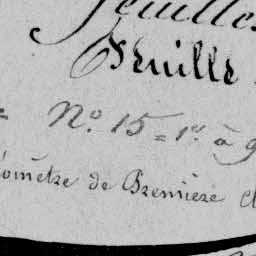 Feuilles
Feuille
= N.° 15 = 1.er à 9
omètre de Première Cl